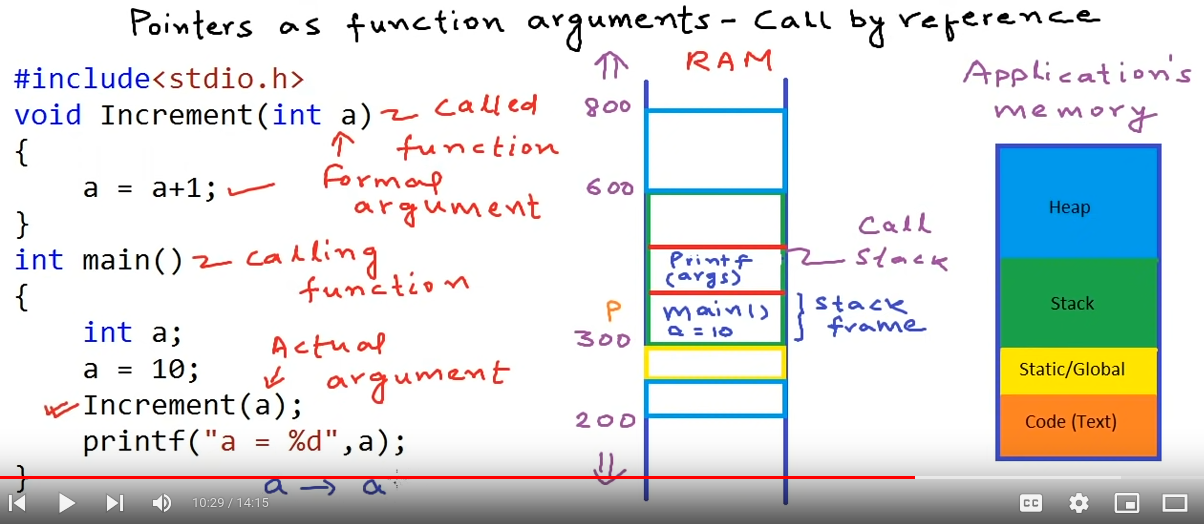 Pointers as function arguments - Call by reference
#include<stdio.h>
void Increment(int a)
{
a = a+1;
}
int main()
{
int a;
a = 10;
Increment(a);
printf("a = %d",a);
}
called
function
Formal
argument
calling
function
Actual
argument
a → a
RAM
800
600
P
300
200
Printf
(args)
main()
a = 10
Call
Stack
Stack
frame
Application's
memory
Heap
Stack
Static/Global
Code (Text)
10:29 / 14:15
CC